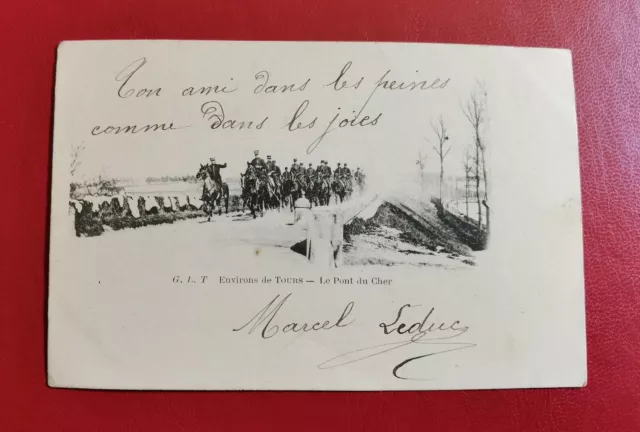 Ton ami dans les peines
comme dans les joies
G. L. T Environs de TOURS — Le Pont du Cher
Marcel Leduc